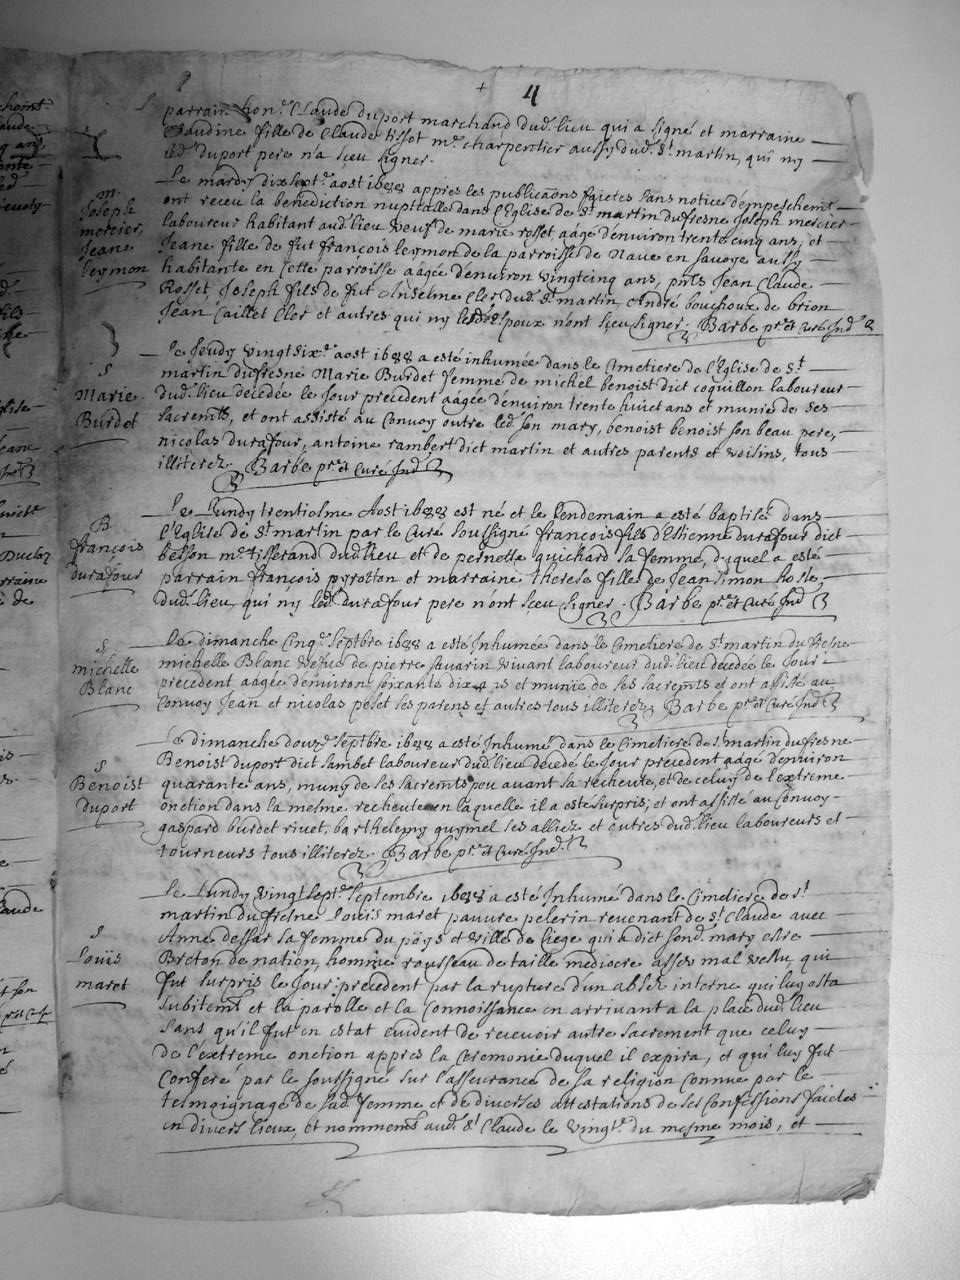 4
parrain hon.e Claude duport marchand dud. lieu qui a signé et marraine
Claudine fille de Claude tisset m.e charpentier aussy dud. st martin, qui ny
led. duport pere n'a sceu signer.
m.
Joseph
mercier,
Jeane
leymon
Le mardy dixsept.e aost 1688 appres les publicaons faictes sans notice d'empeschemt
ont receu la benediction nuptialle dans l'Eglise de st martin dufresne Joseph mercier
laboureur habitant aud. lieu veuf de marie rosset aagé d'environ trente cinq ans, et
Jeane fille de fut françois leymon de la parroisse de Nave en savoye aussy
habitante en cette parroisse aagée d'environ vingtcinq ans, pnts Jean Claude
Rosset, Joseph fils de fut Anselme Cler dud. st martin André bouchoux de brion
Jean Caillet Cler et autres qui ny lesd. espoux n'ont sceu signer. Barbe pr.e et Curé Ind.
S
Marie
Burdet
Le Jeudy vingtsix.e aost 1688 a esté inhumée dans le Cimetiere de l'Eglise de St
martin dufresne Marie Burdet femme de michel benoist dict coquillon laboureur
dud. lieu decedée le Jour precedent aagée d'environ trente huict ans et munie de ses
sacremts, et ont assisté au Convoy outre led. son mary, benoist benoist son beau pere,
nicolas durafour, antoine rambert dict martin et autres parents et voisins, tous
illiterez. Barbe pr.e et Curé Ind.
B
françois
durafour
Le Lundy trentiesme Aost 1688 est né et le lendemain a esté baptisé dans
l'Eglise de st martin par le Curé soussigné françois fils d'Estienne durafour dict
besson m.e tisserand dud. lieu et de pernette quichard sa femme, duquel a esté
parrain françois pyrotton et marraine therese fille de Jean simon hoste,
dud. lieu, qui ny led. durafour pere n'ont sceu signer. Barbe pr.e et Curé Ind
S
michelle
Blanc
Le dimanche Cinq.e septbre 1688 a esté Inhumée dans le Cimetiere de st martin du fresne
michelle Blanc vefve de pierre savarin vivant laboureur dud. lieu decedée le Jour
precedent aagée d'environ soixante dix ans et munie de ses sacremts et ont assisté au
Convoy Jean et nicolas poset ses parens et autres tous illiterez. Barbe pr.e et Curé Ind.
S
Benoist
duport
Le dimanche douz.e septbre 1688 a esté Inhumé dans le Cimetiere de st martin dufresne
Benoist duport dict sambet laboureur dud. lieu decedé le Jour precedent aagé d'environ
quarante ans, muny de ses sacremts peu avant sa recheute, et de celuy de l'extreme
onction dans la mesme recheute en laquelle il a esté surpris, et ont assisté au Convoy
gaspard burdet rivet, barthelemy guymel ses alliez et autres dud. lieu laboureurs et
tourneurs tous illiterez. Barbe pr.e et Curé Ind.
S
Loüis
maret
Le Lundy vingtsept.e septembre 1688 a esté Inhumé dans le Cimetiere de st
martin dufresne Louis maret pauvre pelerin revenant de st Claude avec
Anne dessar sa femme du päys et ville de Liege qui a dict sond. mary estre
Breton de nation, homme rousseau de taille mediocre assez mal vestu, qui
fut surpris le Jour precedent par la rupture d'un absez interne qui luy osta
subitemt et la parolle et la connoissance en arrivant a la place dud. lieu
sans qu'il fut en estat evident de recevoir autre sacrement que celuy
de l'extreme onction appres la ceremonie duquel il expira, et qui luy fut
Conferé par le soussigné sur l'asseurance de sa religion connue par le
temoignage de sad. femme et de diverses attestations de ses Confessions faictes
en divers lieux, et nommemt aud. st Claude le vingt.e du mesme mois, et